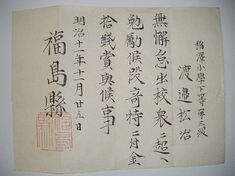 稲澤小學下等第三級
渡邉松治
無懈怠出校衆ニ超ヘ
勉勵候段奇特ニ付金
拾錢賞與候事
明治十一年十一月廿五日
福島縣